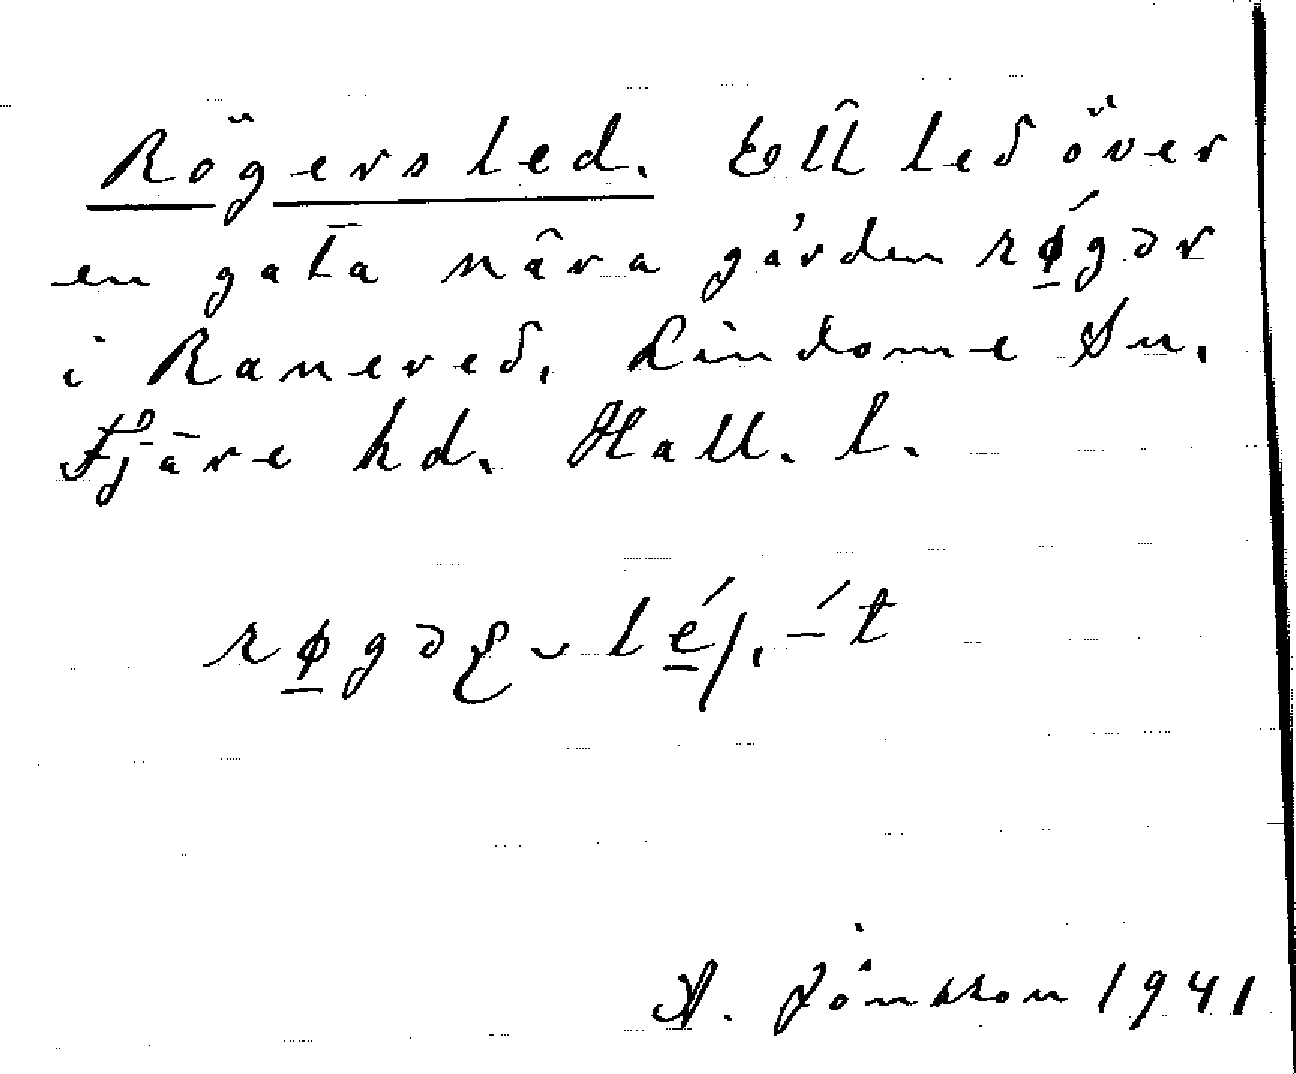 Rögersled. Ett led över
en gata nära gården rǿ̲gər
i Ranered, Lindome sn.
Fjäre hd. Hall. l.
A. Jönsson 1941